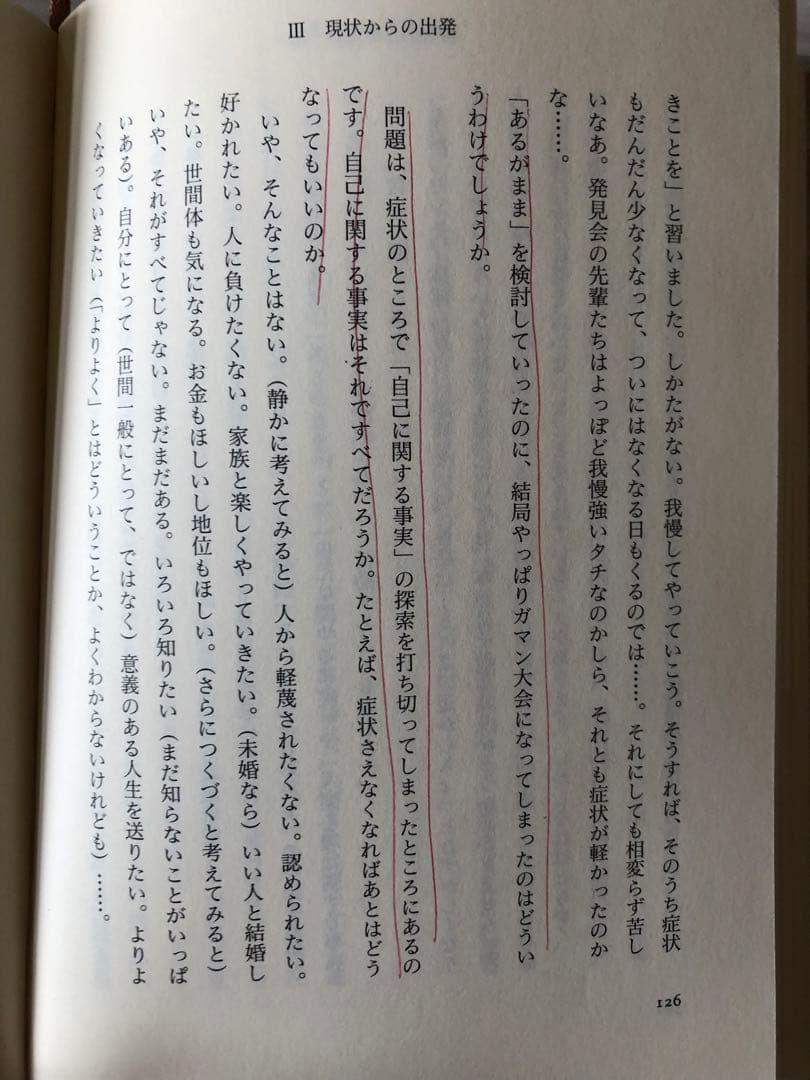 III 現状からの出発
きことを」と習いました。しかたがない。我慢してやっていこう。そうすれば、そのうち症状
もだんだん少なくなって、ついにはなくなる日もくるのでは……。それにしても相変らず苦し
いなあ。発見会の先輩たちはよっぽど我慢強いタチなのかしら、それとも症状が軽かったのか
な……。
「あるがまま」を検討していったのに、結局やっぱりガマン大会になってしまったのはどうい
うわけでしょうか。
問題は、症状のところで「自己に関する事実」の探索を打ち切ってしまったところにあるの
です。自己に関する事実はそれですべてだろうか。たとえば、症状さえなくなればあとはどう
なってもいいのか。
いや、そんなことはない。（静かに考えてみると）人から軽蔑されたくない。認められたい。
好かれたい。人に負けたくない。家族と楽しくやっていきたい。（未婚なら）いい人と結婚し
たい。世間体も気になる。お金もほしいし地位もほしい。（さらにつくづくと考えてみると）
いや、それがすべてじゃない。まだまだある。いろいろ知りたい（まだ知らないことがいっぱ
いある）。自分にとって（世間一般にとって、ではなく）意義のある人生を送りたい。よりよ
くなっていきたい（「よりよく」とはどういうことか、よくわからないけれども）……。
126